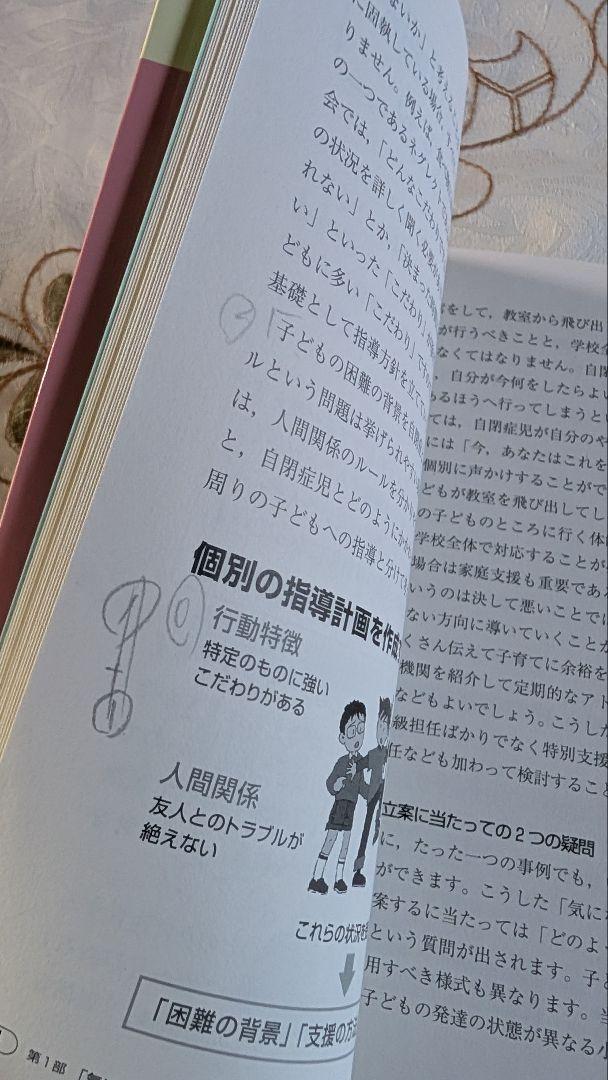 に固執している場合,
りません。例えば,
の一つであるネグレクト
会では,「どんなこだわ
の状況を詳しく聞く必要が
れない」とか,「決まった
い」といった「こだわり」
どもに多い「こだわり」
基礎として指導方針を立て
「子どもの困難の背景を自閉
ルという問題は挙げられ
は,人間関係のルールを分か
と,自閉症児とどのように
周りの子どもへの指導と分けて
個別の指導計画を作成
行動特徴
特定のものに強い
こだわりがある
人間関係
友人とのトラブルが
絶えない
これらの状況を
「困難の背景」「支援の方
第1部
をして,教室から飛び出
が行うべきことと,学校全
なくてはなりません。自閉
,自分が今何をしたらよい
あるほうへ行ってしまうと
ては,自閉症児が自分のや
には「今,あなたはこれを
個別に声かけすることがで
どもが教室を飛び出してし
の子どものところに行く体
学校全体で対応することが
場合は家庭支援も重要であ
いうのは決して悪いことで
ない方向に導いていくことが
くさん伝えて子育てに余裕を
機関を紹介して定期的なアド
などもよいでしょう。こうした
級担任ばかりでなく特別支援
任なども加わって検討すること
立案に当たっての2つの疑問
に,たった一つの事例でも,
ができます。こうした「気に
案するに当たっては「どのよ
という質問が出されます。子ど
用すべき様式も異なります。当
子どもの発達の状態が異なる小